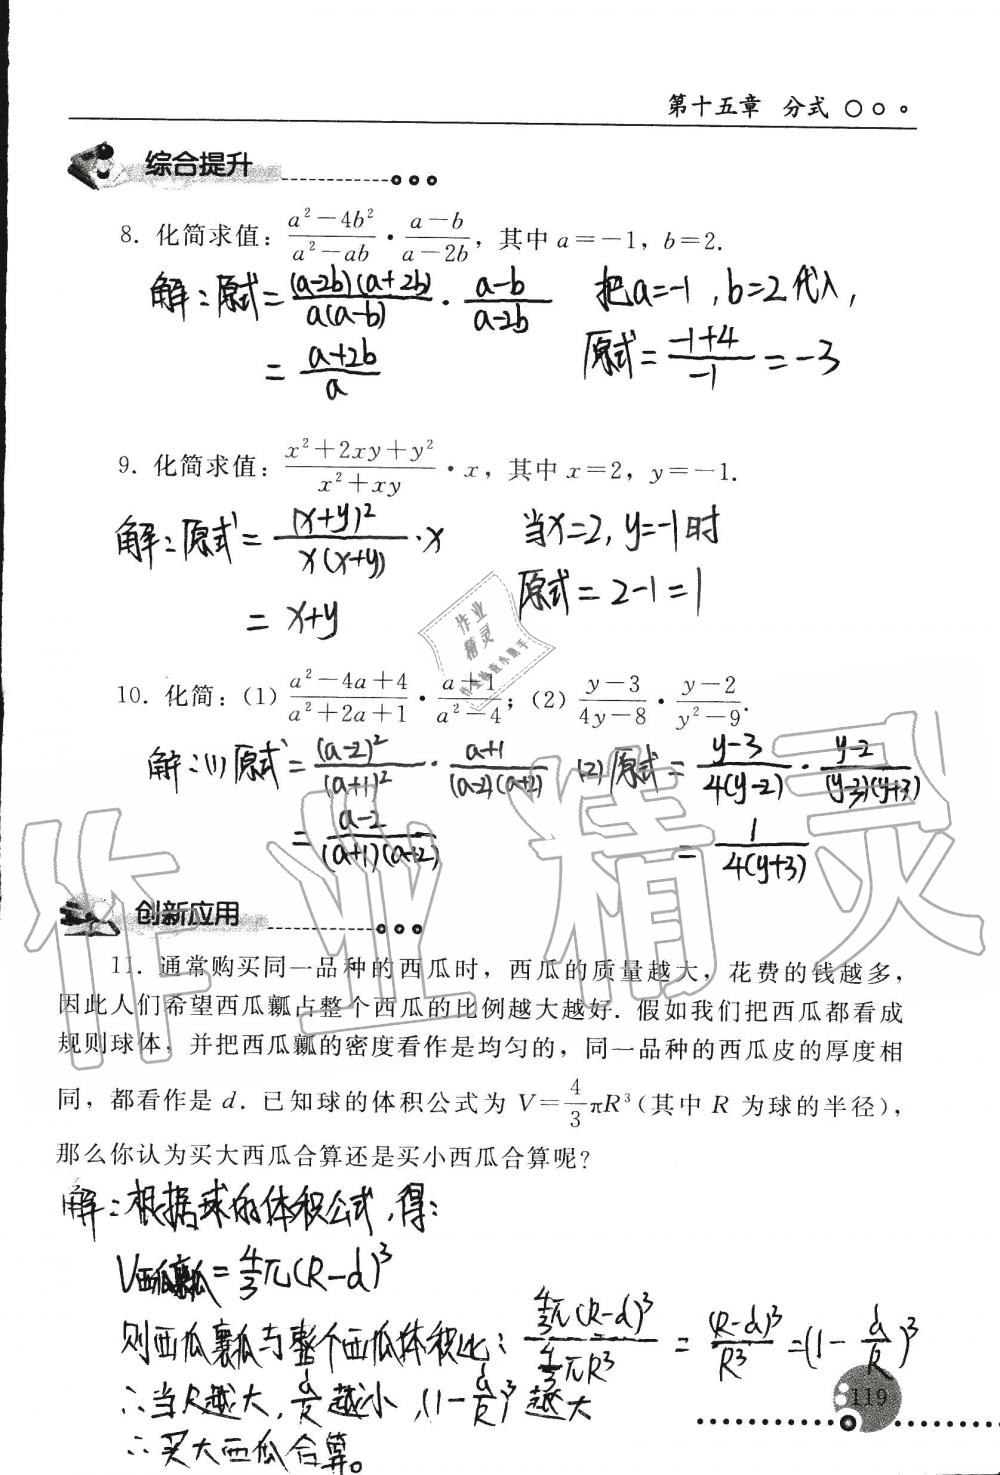 第十五章 分式
综合提升
8. 化简求值：(a²−4b²)/(a²−ab)·(a−b)/(a−2b)，其中 a=−1，b=2.
解：原式=(a-2b)(a+2b)/a(a-b)·(a-b)/(a-2b) 把a=-1，b=2代入，
=(a+2b)/a 原式=(-1+4)/-1=-3
9. 化简求值：(x²+2xy+y²)/(x²+xy)·x，其中 x=2，y=−1.
解：原式=(x+y)²/x(x+y)·x 当x=2，y=-1时
=x+y 原式=2-1=1
作业精灵
10. 化简：(1) (a²−4a+4)/(a²+2a+1)·(a+1)/(a²−4)；(2) (y−3)/(4y−8)·(y−2)/(y²−9).
解：(1)原式=(a-2)²/(a+1)²·(a+1)/(a-2)(a+2) (2)原式=(y-3)/4(y-2)·(y-2)/(y-3)(y+3)
=(a-2)/(a+1)(a+2) =1/4(y+3)
作业精灵
创新应用
11. 通常购买同一品种的西瓜时，西瓜的质量越大，花费的钱越多，
因此人们希望西瓜瓤占整个西瓜的比例越大越好. 假如我们把西瓜都看成
规则球体，并把西瓜瓤的密度看作是均匀的，同一品种的西瓜皮的厚度相
同，都看作是 d. 已知球的体积公式为 V=4/3πR³(其中 R 为球的半径)，
那么你认为买大西瓜合算还是买小西瓜合算呢？
解：根据球的体积公式，得：
V西瓜瓤=4/3π(R-d)³
则西瓜瓤与整个西瓜体积比：4/3π(R-d)³/4/3πR³=(R-d)³/R³=(1-d/R)³
∴当R越大，d/R越小，(1-d/R)³越大
∴买大西瓜合算.
119